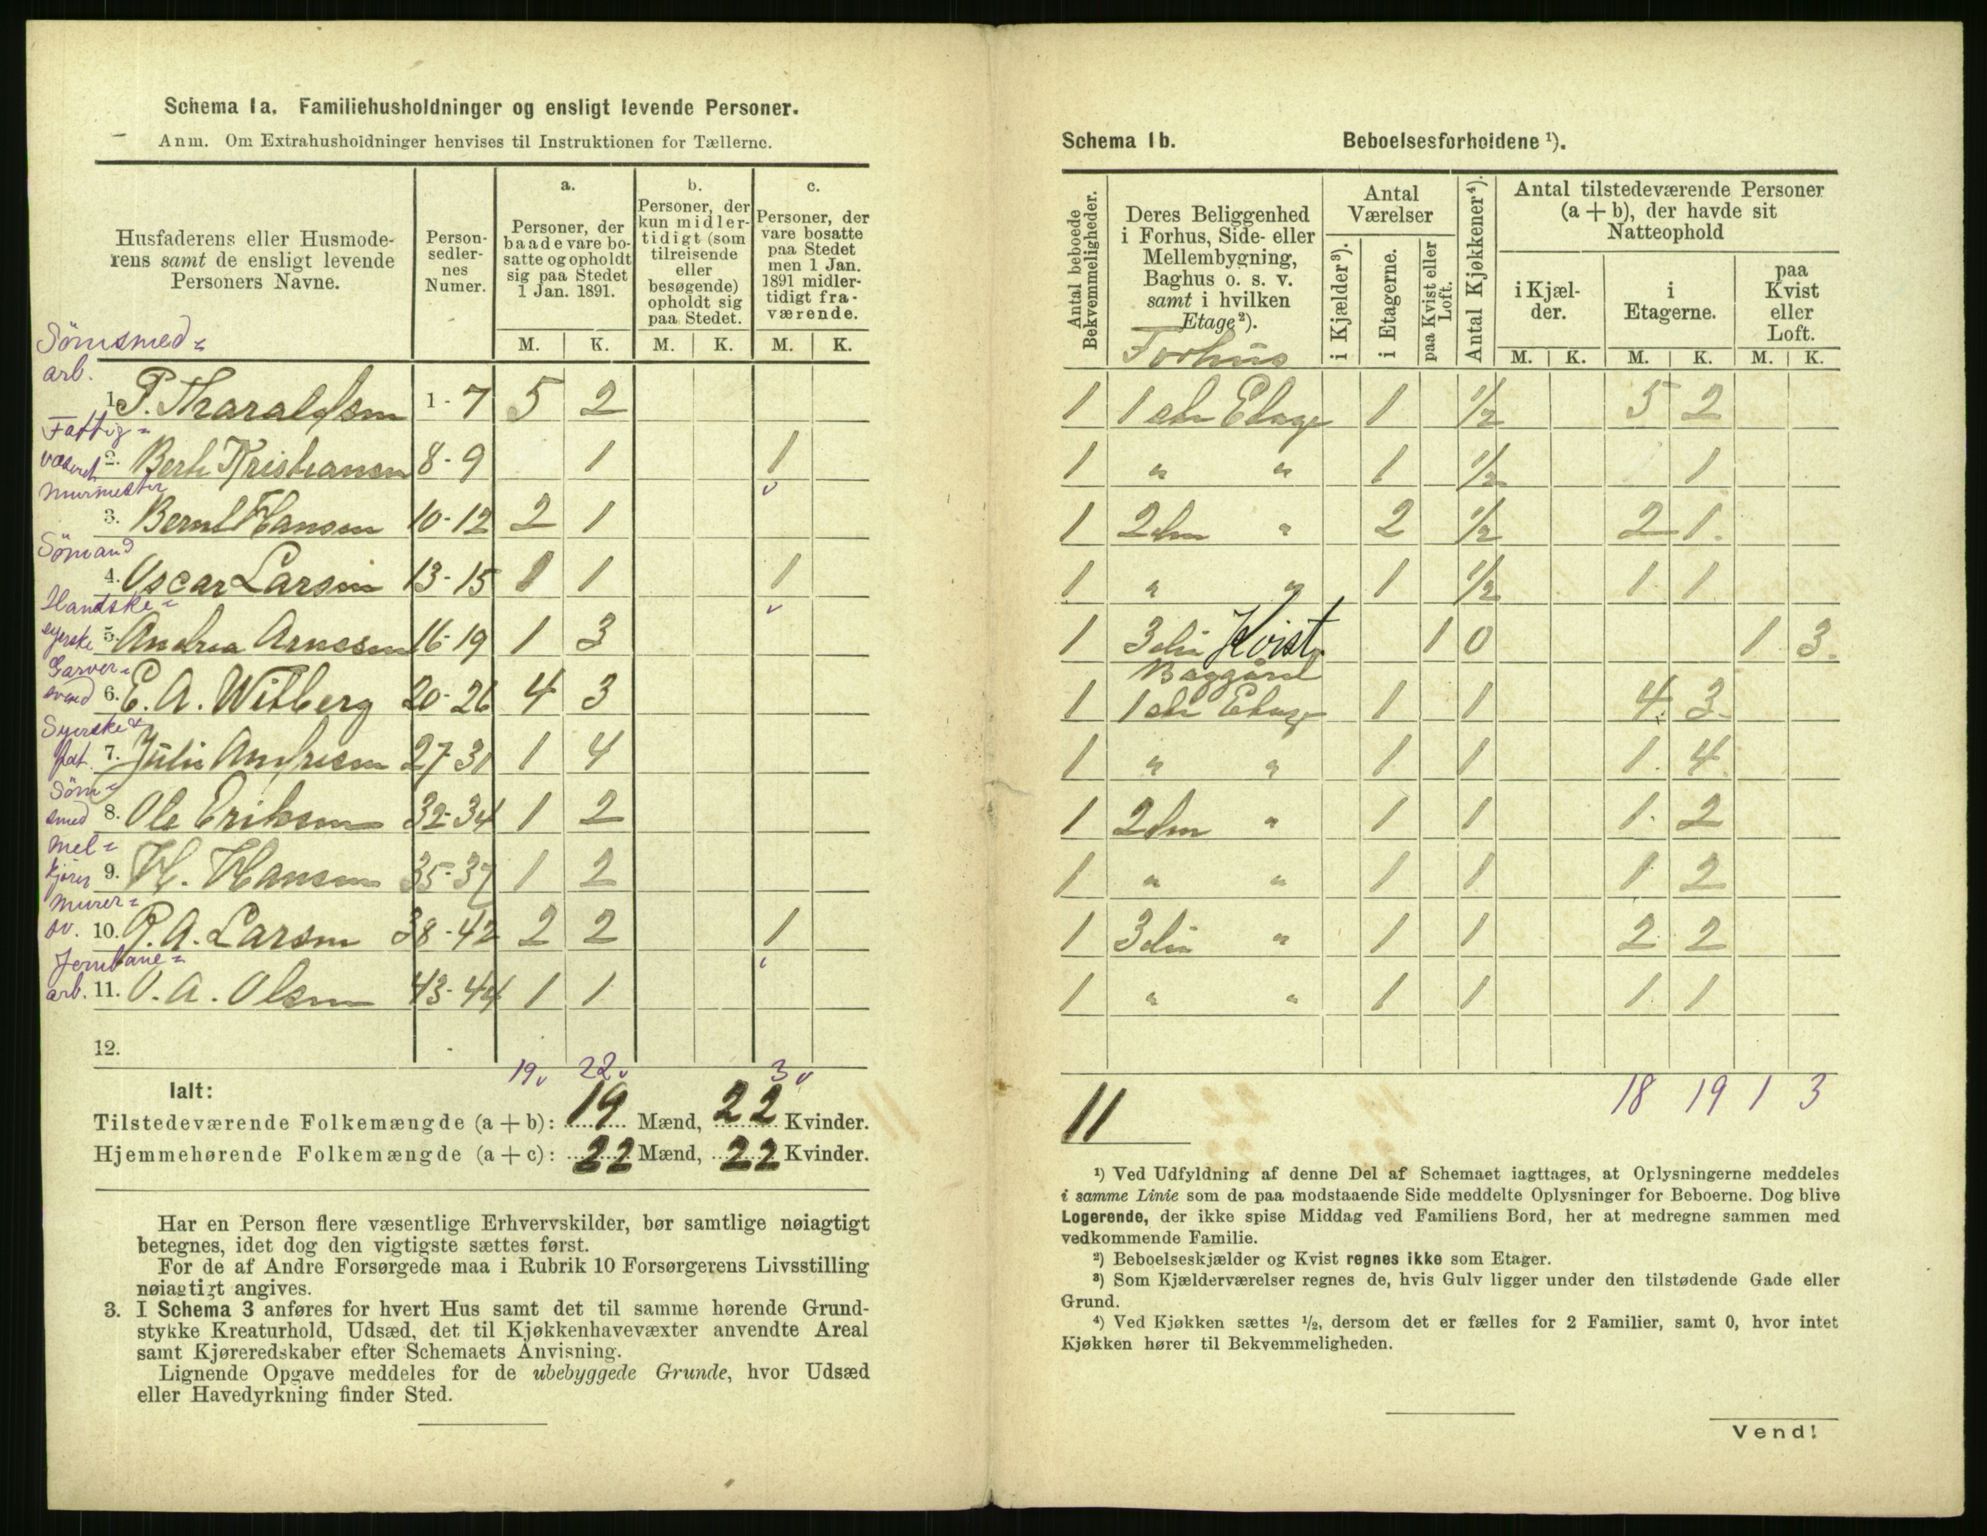 Schema 1a. Familiehusholdninger og ensligt levende Personer.
Anm. Om Extrahusholdninger henvises til Instruktionen for Tællerne.
Husfaderens eller Husmoderens samt de ensligt levende Personers Navne.
Personsedlernes Numer.
a. Personer, der baade vare bosatte og opholdt sig paa Stedet 1 Jan. 1891.
b. Personer, der kun midlertidigt (som tilreisende eller besøgende) opholdt sig paa Stedet.
c. Personer, der vare bosatte paa Stedet men 1 Jan. 1891 midlertidigt fraværende.
M. K. M. K. M. K.
Sömsmed=
arb.
1. P. Tharaldsen 1-7 5 2
Fattig=
væsenet
2. Berh Kristiansen 8-9 1 1
Murmester
3. Bernt Hansen 10-12 2 1
Sömand
4. Oscar Larsen 13-15 1 1 1
Handske=
syerske
5. Andrea Arnesen 16-19 1 3
Garver=
svend
6. E. A. Witberg 20-26 4 3
Syerske &
fat.
7. Julie Andresen 27-31 1 4
Söm=
smed
8. Ole Eriksen 32-34 1 2
Mel=
kjörer
9. H. Hansen 35-37 1 2
Murer=
sv.
10. P. A. Larsen 38-42 2 2 1
Jernbane=
arb.
11. O. A. Olsen 43-44 1 1
12.
19 22 3
Ialt:
Tilstedeværende Folkemængde (a + b): 19 Mænd, 22 Kvinder.
Hjemmehørende Folkemængde (a + c): 22 Mænd, 22 Kvinder.
Har en Person flere væsentlige Erhvervskilder, bør samtlige nøiagtigt
betegnes, idet dog den vigtigste sættes først.
For de af Andre Forsørgede maa i Rubrik 10 Forsørgerens Livsstilling
nøiagtigt angives.
3. I Schema 3 anføres for hvert Hus samt det til samme hørende Grund-
stykke Kreaturhold, Udsæd, det til Kjøkkenhavevæxter anvendte Areal
samt Kjøreredskaber efter Schemaets Anvisning.
Lignende Opgave meddeles for de ubebyggede Grunde, hvor Udsæd
eller Havedyrkning finder Sted.
Schema 1b. Beboelsesforholdene ¹).
Antal beboede Bekvemmeligheder.
Deres Beliggenhed i Forhus, Side- eller Mellembygning, Baghus o. s. v. samt i hvilken Etage²).
Antal Værelser
i Kjælder³).
i Etagerne.
paa Kvist eller Loft.
Antal Kjøkkener⁴).
Antal tilstedeværende Personer (a + b), der havde sit Natteophold
i Kjælder.
i Etagerne.
paa Kvist eller Loft.
M. K. M. K. M. K.
Forhus
1 1ste Etage 1 1/2 5 2
1 " " 1 1/2 1
1 2den " 2 1/2 2 1
1 " " 1 1/2 1 1
1 3die Kvist 1 0 1 3
Baggård
1 1ste Etage 1 1 4 3
1 " " 1 1 1 4
1 2den " 1 1 1 2
1 " " 1 1 1 2
1 3die " 1 1 2 2
1 " " 1 1 1 1
11 18 19 1 3
¹) Ved Udfyldning af denne Del af Schemaet iagttages, at Oplysningerne meddeles
i samme Linie som de paa modstaaende Side meddelte Oplysninger for Beboerne. Dog blive
Logerende, der ikke spise Middag ved Familiens Bord, her at medregne sammen med
vedkommende Familie.
²) Beboelseskjælder og Kvist regnes ikke som Etager.
³) Som Kjælderværelser regnes de, hvis Gulv ligger under den tilstødende Gade eller
Grund.
⁴) Ved Kjøkken sættes ½, dersom det er fælles for 2 Familier, samt 0, hvor intet
Kjøkken hører til Bekvemmeligheden.
Vend!